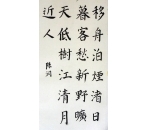 移舟泊煙渚日
暮客愁新野曠
天低樹江清月
近人
陈鸿